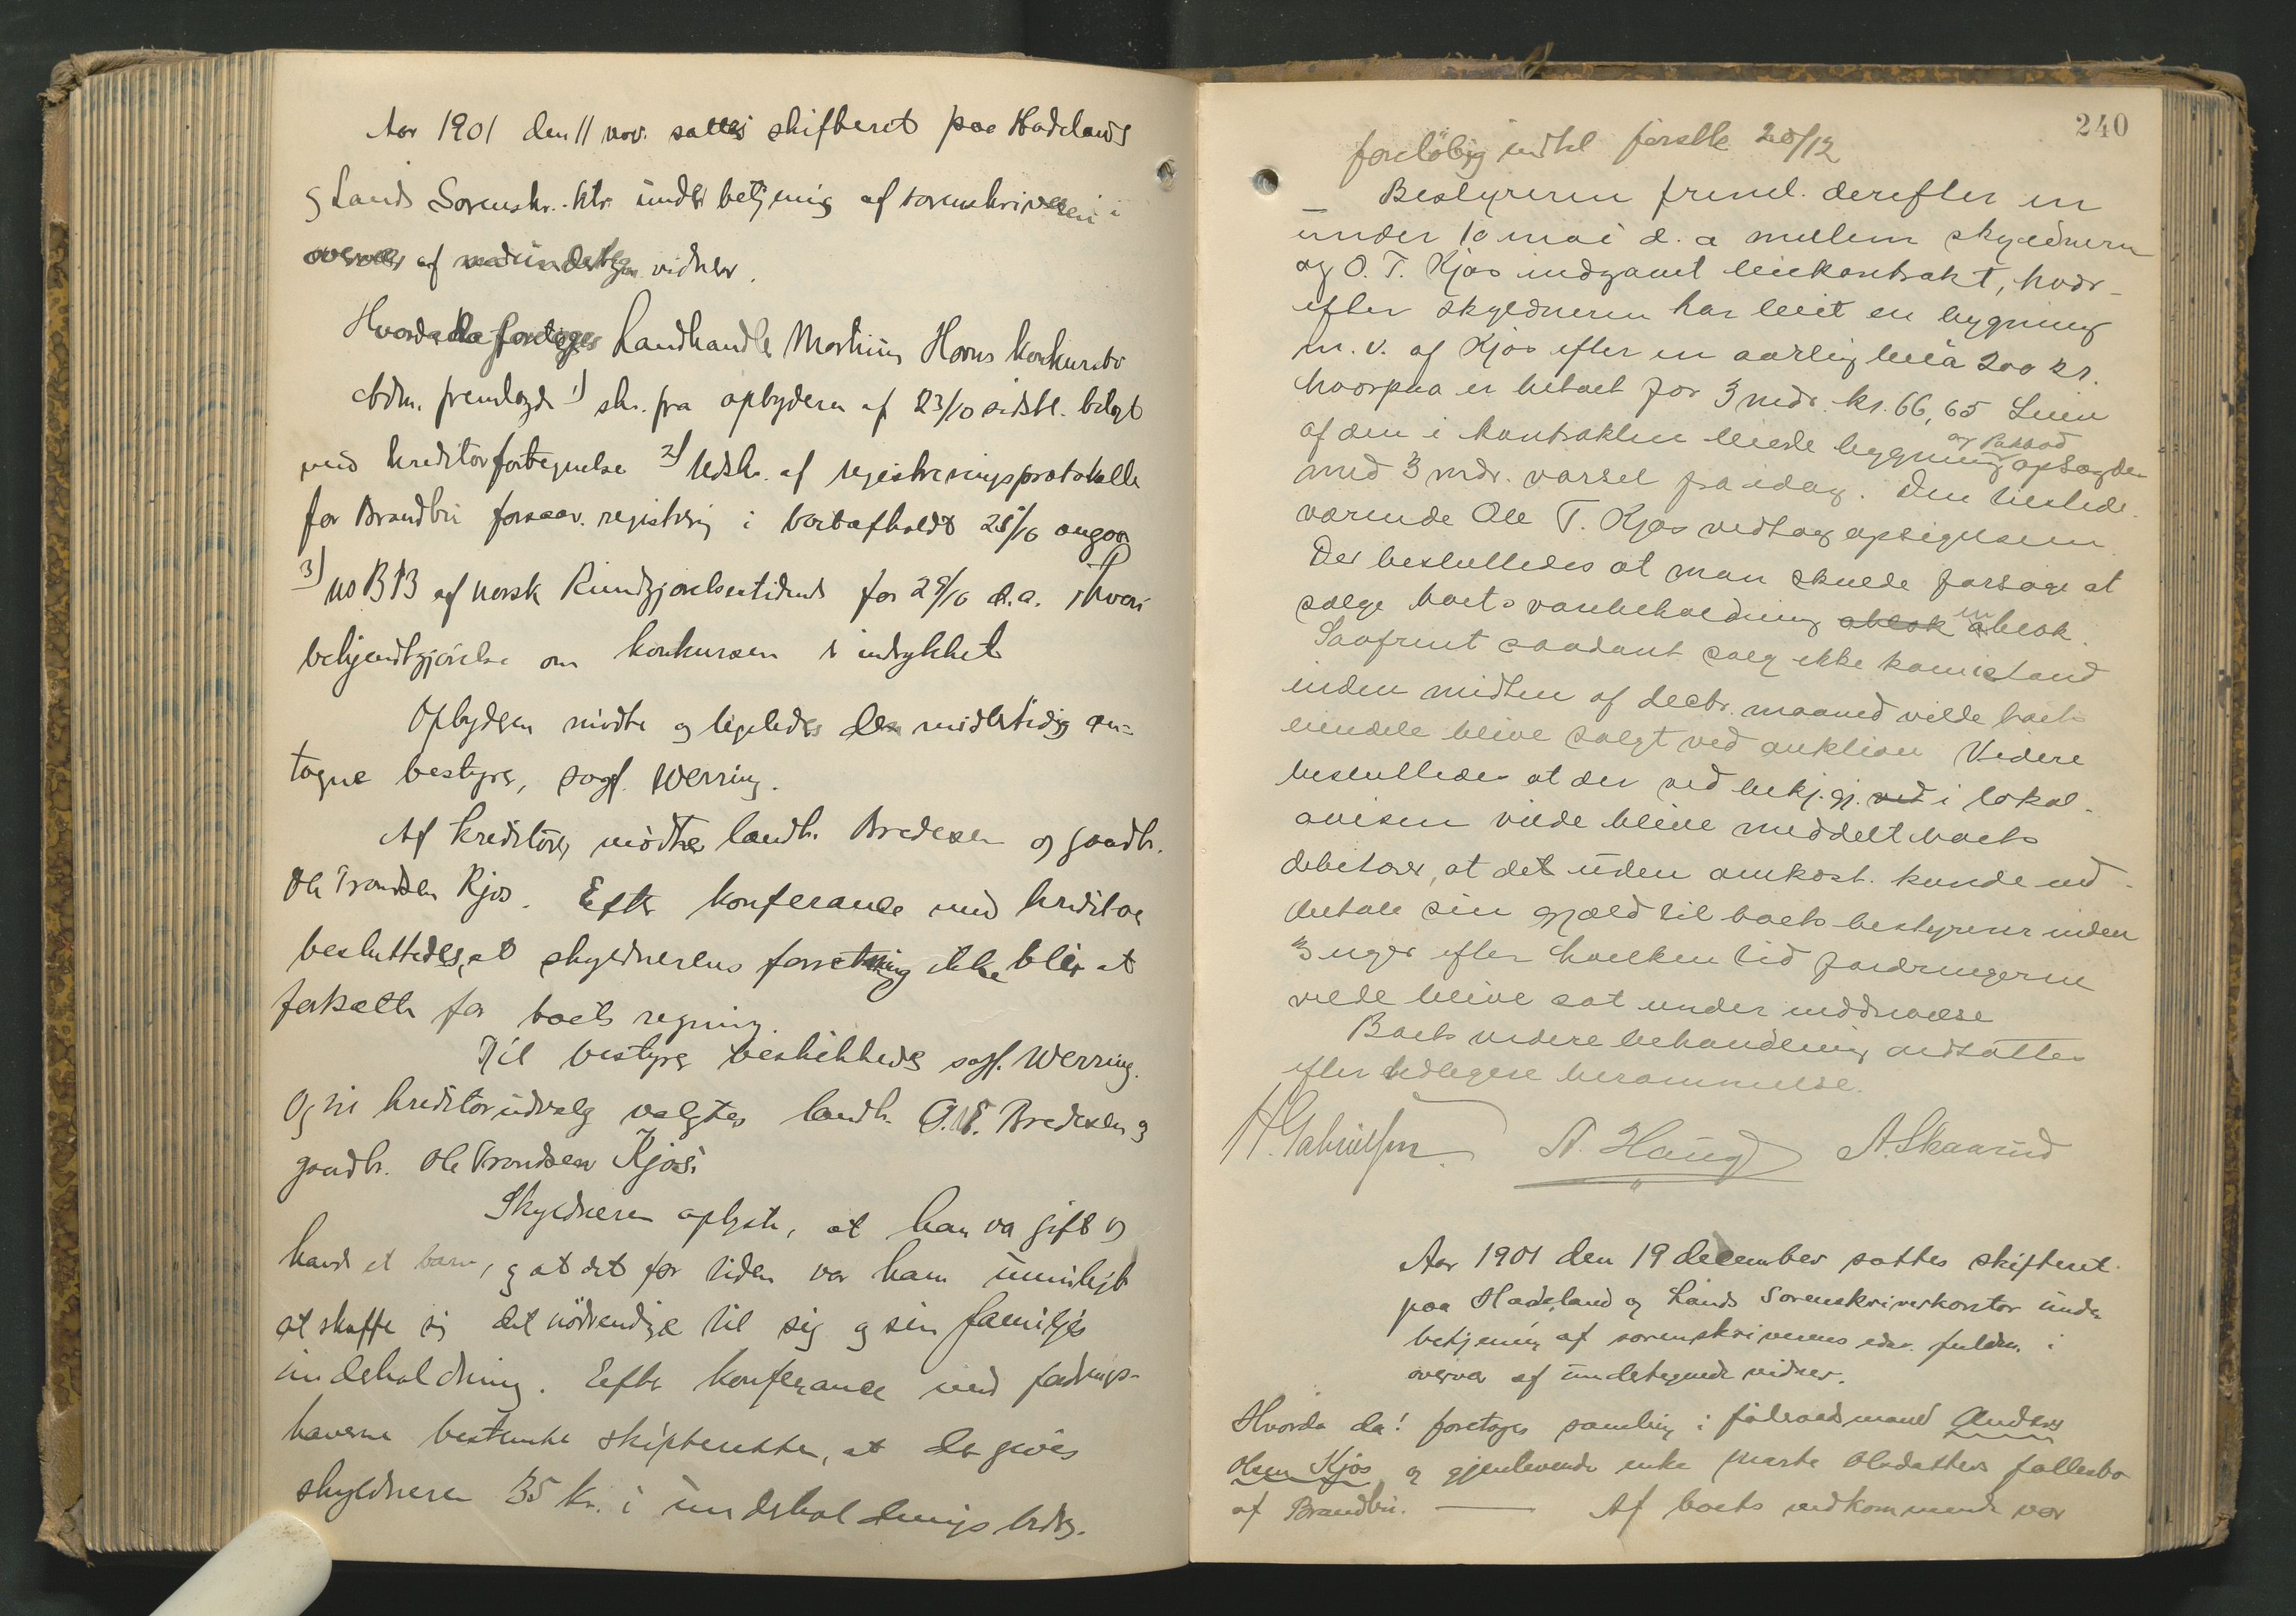 Aar 1901 den 11 nov. sattes skifteret paa Hadelands
og Lands Sorenskr.-ktr. under betjening af sorenskriveren i
overvær af medundertegn. vidner.
Hvorda da foretoges Landhandler Martinius Horns konkursbo
Adm. fremlagde 1) skr. fra opbyderen af 23/10 sidstl. bilagt
med kreditorfortegnelse 2) Udskr. af registreringsprotokollen
for Brandbu forsaav. registrering i boet afholdt 25/10 angaar
3) No 313 af Norsk Kundgjørelsestidende for 29/10 d.a. hvori
bekjendtgjørelse om konkursen er indrykket
Opbyderen mødte og ligeledes den midlertidig an-
tagne bestyrer, sagf. Werring.
Af kreditorer mødte landh. Bredesen og gaardbr.
Ole Trondsen Kjos. Efter konferance med kreditorer
besluttedes, at skyldnerens forretning ikke blir at
fortsætte for boets regning.
Til bestyrer beskikkedes sagf. Werring.
Og til kreditorudvalg valgtes landh. Bredesen og
gaardbr. Ole Trondsen Kjos.
Skyldneren oplyste, at han var gift og
havde et barn, og at det for tiden var ham umuligt
at skaffe sig det nödvendige til sig og sin familjes
underholdning. Efter konferance med fordrings-
haverne bestemte skifteretten, at der gives
skyldneren 35 kr. i underholdningsbidrag.
240
foreløbig indtil förstk. 20/12
Bestyreren freml. derefter en
under 10 mai d.a mellem skyldneren
og O. T. Kjos indgaaet leiekontrakt, hvor-
efter skyldneren har leiet en bygning
m.v. af Kjos efter en aarlig leie à 200 kr.
hvorpaa er betalt for 3 mdr. kr. 66,65 Leien
af den i kontrakten leiede bygning og Pakbod opsagdes
med 3 mdr. varsel fra idag. Den tilstede-
værende Ole T. Kjos vedtog opsigelsen
Det besluttedes at man skulde forsøge at
sælge boets varebeholdning ablok en ablok.
Saafremt saadant salg ikke kom istand
inden midten af decbr. maaned vilde boets
eiendele blive solgt ved auktion Videre
besluttedes at der ved bekj.gj. ved i lokal-
avisen vilde blive meddelt boets
debitorer, at det uden omkost. kunde ind-
betale sin gjæld til boets bestyrer inden
3 uger efter hvilken tid fordringerne
vilde blive sat under inddrivelse
Boets videre behandling udsattes
efter tidligere berammelse.
H. Gabrielsen. A. Haug A. Skaarud
Aar 1901 den 19 december sattes skifteret
paa Hadeland og Lands Sorenskriverkontor under
betjening af sorenskriverens edsv. fuldm. i
overvær af undertegnede vidner.
Hvorda da! foretoges samling i föderaadsmand Anders
Olsen Kjos og gjenlevende enke Marte Olsdatters fællesbo
af Brandbu. — Af boets vedkommende var